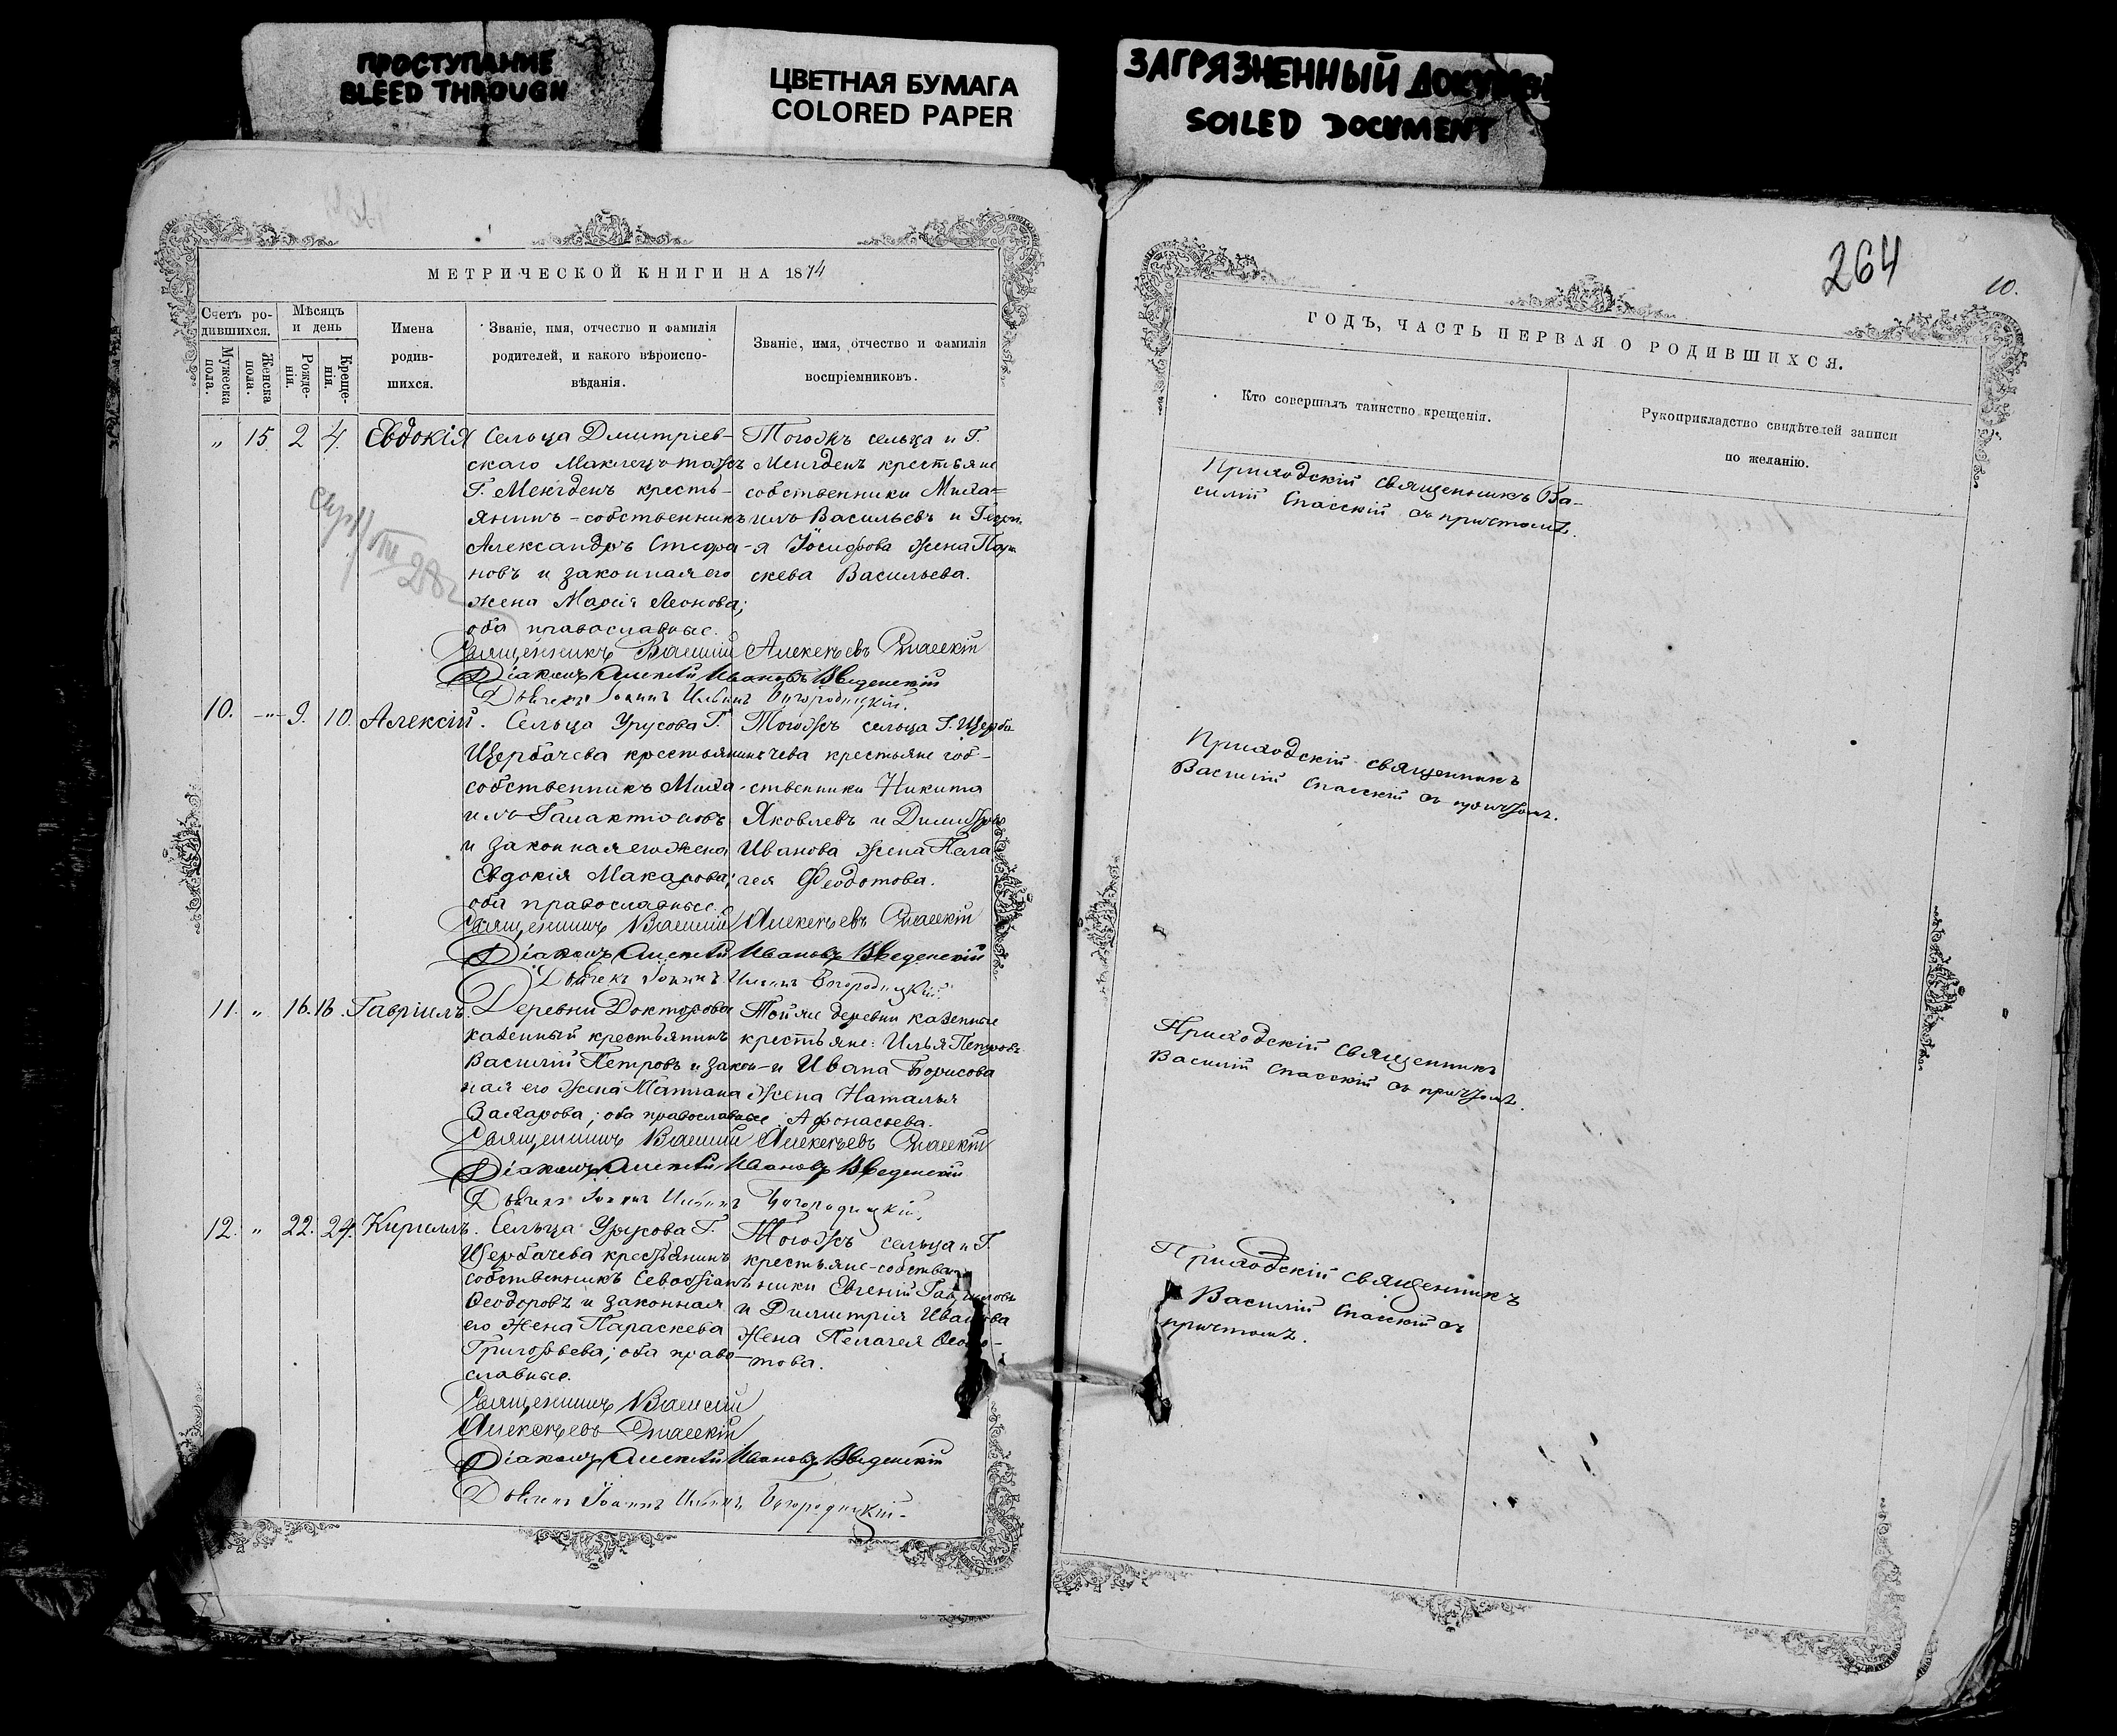 ПРОСТУПАНИЕ
BLEED THROUGH
ЦВЕТНАЯ БУМАГА
COLORED PAPER
ЗАГРЯЗНЕННЫЙ ДОКУМЕН
SOILED DOCUMENT
МЕТРИЧЕСКОЙ КНИГИ НА 1874
Счетъ ро-
дившихся.
Мужеска пола.
Женска пола.
Мѣсяцъ
и день
Рожде-
нія.
Креще-
нія.
Имена
родив-
шихся.
Званіе, имя, отчество и фамилія
родителей, и какого вѣроиспо-
вѣданія.
Званіе, имя, отчество и фамилія
воспріемниковъ.
„ 15. 2 4. Евдокія
Сельца Дмитріев-
скаго Маклецъ тожъ
Г. Менгденъ кресть-
янинъ-собственникъ
Александръ Стефа-
новъ и законная его
жена Марія Леонова;
оба православные.
Тогожъ сельца и Г.
Менгденъ крестьяне
собственники Миха=
илъ Васильевъ и Георгі
я Іосифова жена Пара
скева Васильева.
Священникъ Василій Алексѣевъ Спасскій
Діаконъ Алексѣй Ивановъ Введенскій
Дьячекъ Іоаннъ Ильинъ Богородицкій.
10. -„- 9. 10. Алексій.
Сельца Урусова Г.
Щербачева крестьянинъ
собственникъ Миха-
илъ Галактіоновъ
и законная его жена
Евдокія Макарова;
оба православные.
Тогожъ сельца Г. Щерба
чева крестьяне соб-
ственники Никита
Яковлевъ и Димитрія
Иванова жена Пела
гея Ѳеодотова.
Священникъ Василій Алексѣевъ Спасскій
Діаконъ Алексѣй Ивановъ Введенскій
Дьячекъ Іоаннъ Ильинъ Богородицкій.
11. „ 16. 18. Гавріилъ.
Деревни Докторова
казенный крестьянинъ
Василій Петровъ и закон-
ная его жена Матіана
Захарова; оба православные
Той же деревни казенные
крестьяне: Илья Петровъ
и Ивана Борисова
жена Наталья
Афонасьева.
Священникъ Василій Алексѣевъ Спасскій
Діаконъ Алексѣй Ивановъ Введенскій
Дьячекъ Іоаннъ Ильинъ Богородицкій.
12. „ 22. 24. Кириллъ.
Сельца Урусова Г.
Щербачева крестьянинъ
собственникъ Севастіанъ
Ѳеодоровъ и законная
его жена Параскева
Григорьева; оба право-
славные.
Тогожъ сельца и Г.
крестьяне-собствен
ники Евгеній Гавриловъ
и Димитрія Иванова
жена Пелагея Ѳеодо-
това.
Священникъ Василій
Алексѣевъ Спасскій
Діаконъ Алексѣй Ивановъ Введенскій
Дьячекъ Іоаннъ Ильинъ Богородицкій.
264
10.
ГОДЪ, ЧАСТЬ ПЕРВАЯ О РОДИВШИХСЯ.
Кто совершалъ таинство крещенія.
Рукоприкладство свидѣтелей записи
по желанію.
Приходскій священникъ Ва-
силій Спасскій съ причтомъ.
Приходскій священникъ
Василій Спасскій съ причтомъ.
Приходскій священникъ
Василій Спасскій съ причтомъ.
Приходскій священникъ
Василій Спасскій съ
причтомъ.